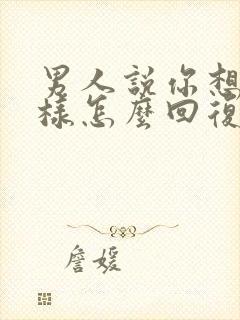 男人說你想
樣怎麼回復
詹媛